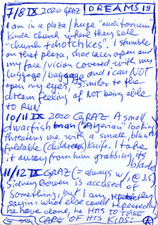 7/8 IX 2020 GRAZ DREAMS 19
I am in a plaza / huge "auditorium"
kinda church where they sell
"church-tchotchkes". I stumble
on that plaza, shoelaces open and
my face/vision covered with my
luggage/baggage and I can NOT
open my eyes, similar to the
dream feeling of NOT being able
to RUN
10/11 IX 2020 GRAZ A small
swarthish man ("Algerian" looking)
threatens me with a small
foldable (children's) knife. I take
it away from him grabbing its
blade
11/12 IX GRAZ (= always w/ @ 25)
Sidney Bowen is accused of
something, but I am
saying: who else could
he have done, he HAS TO TAKE
CARE OF HIS KIDS!